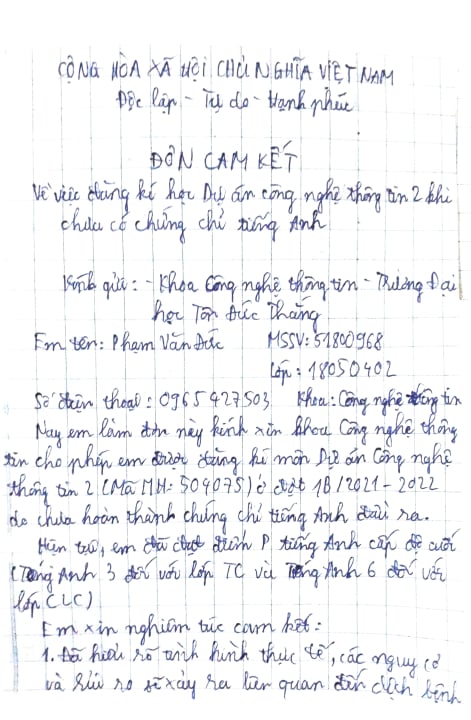 CỘNG HÒA XÃ HỘI CHỦ NGHĨA VIỆT NAM
Độc lập - Tự do - Hạnh phúc
ĐƠN CAM KẾT
Về việc đăng kí học Dự án công nghệ thông tin 2 khi
chưa có chứng chỉ tiếng Anh
Kính gửi: - Khoa Công nghệ thông tin - Trường Đại
học Tôn Đức Thắng
Em tên: Phạm Văn Đức MSSV: 51800968
Lớp: 18050402
Số điện thoại: 0965427503 Khoa: Công nghệ thông tin
Nay em làm đơn này kính xin khoa Công nghệ thông
tin cho phép em được đăng kí môn Dự án Công nghệ
thông tin 2 (Mã MH: 504075) ở đợt 1B/2021-2022
do chưa hoàn thành chứng chỉ tiếng Anh đầu ra.
Hiện tại, em đã đạt điểm P tiếng Anh cấp độ cuối
(Tiếng Anh 3 đối với lớp TC và Tiếng Anh 6 đối với
lớp CLC)
Em xin nghiêm túc cam kết:
1. Đã hiểu rõ tình hình thực tế, các nguy cơ
và rủi ro sẽ xảy ra liên quan đến dịch bệnh